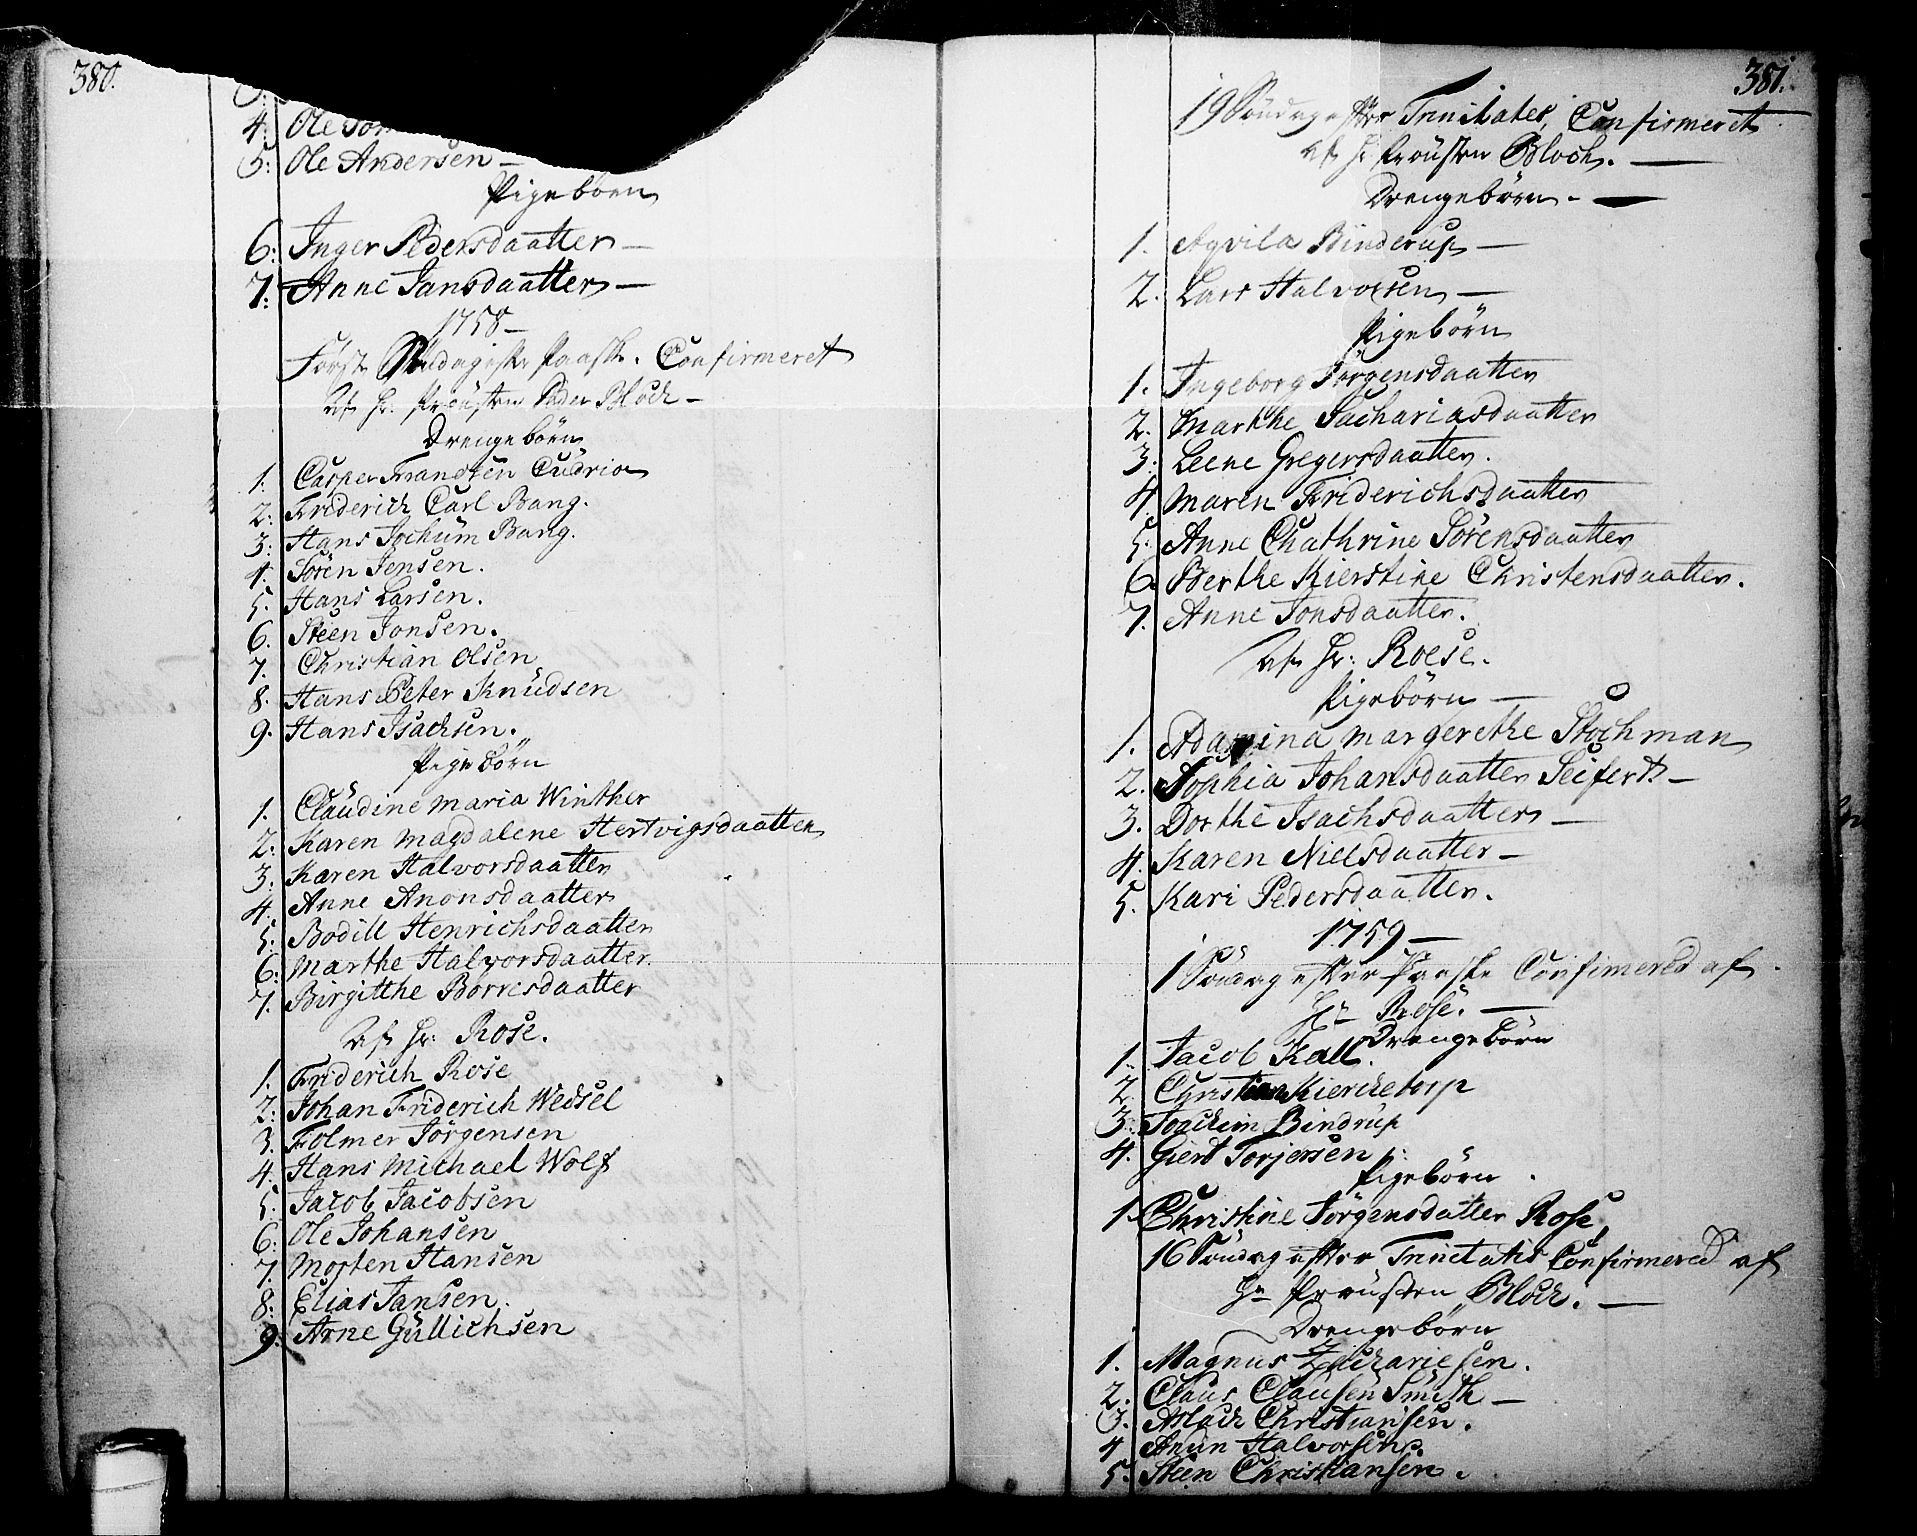 380.
3.
4. Ole
5. Ole Andersen –
Pigebörn
6: Inger Pedersdaatter –
7: Anne Jansdaatter –
1758 –
Först Paaske. Confirmeret
af Hr. Proústen Peder Bloch –
Drengebörn
1. Casper Frandsen Cúdrio
2: Friderich Carl Bang.
3: Hans Jochúm Bang.
4. Sören Jensen.
5. Hans Larsen.
6. Steen Jonsen.
7. Christian Olsen
8. Hans Peter Knúdsen
9. Hans Isachsen.
Pigebörn
1. Claúdine Maria Winther
2. Karen Magdalene Hertvigsdaatter
3. Karen Halvorsdaatter
4. Anne Anonsdaatter
5. Bodill Henrichsdaatter
6: Marthe Halvorsdaatter.
7. Birgitthe Börresdaatter
af Hr: Rose.
1. Friderich Rose
2: Johan Friderich Wedsel
3. Folmer Jörgensen
4. Hans Michael Wolf
5. Jacob Jacobsen
6: Ole Johansen
7. Morten Hansen
8. Elias Jansen.
9. Arne Gúllichsen
381.
19 Söndag efter Trinitates, Confirmeret
af Hr Proústen Bloch. –
Drengebörn. –
1. Aqvila Binderup –
2. Lars Halvorsen –
Pigebörn
1. Ingeborg Jörgensdaatter
2. Marthe Sachariasdaatter
3. Leene Gregersdaatter.
4. Maren Friderichsdaatter
5. Anne Chathrine Sörensdaatter
6. Berthe Kierstine Christensdaatter.
7. Anne Jonsdaatter.
af Hr: Roese.
Pigebörn –
1. Adamina Margerethe Stochman
2. Sophia Johansdaatter Seifert –
3. Dorthe Isachsdaatter –
4. Karen Nielsdaatter –
5. Kari Pedersdaatter.
1759 –
1 Söndag efter Paaske Confimered af
Hr Rose. –
Drengebörn
1. Jacob Kall.
2. Christian Kierketorp
3. Joachim Bindrúp
4. Giert Torjersen
Pigebörn.
1. Christine Jörgensdatter Rose,
16 Söndag efter Trinitatis Confirmered af
Hr Proústen Bloch. –
Drengebörn
1. Magnus Zachariesen.
2. Claus Claúsen Smith –
3. Aslach Christiansen.
4. Anún Halvorsen.
5. Steen Christiansen.